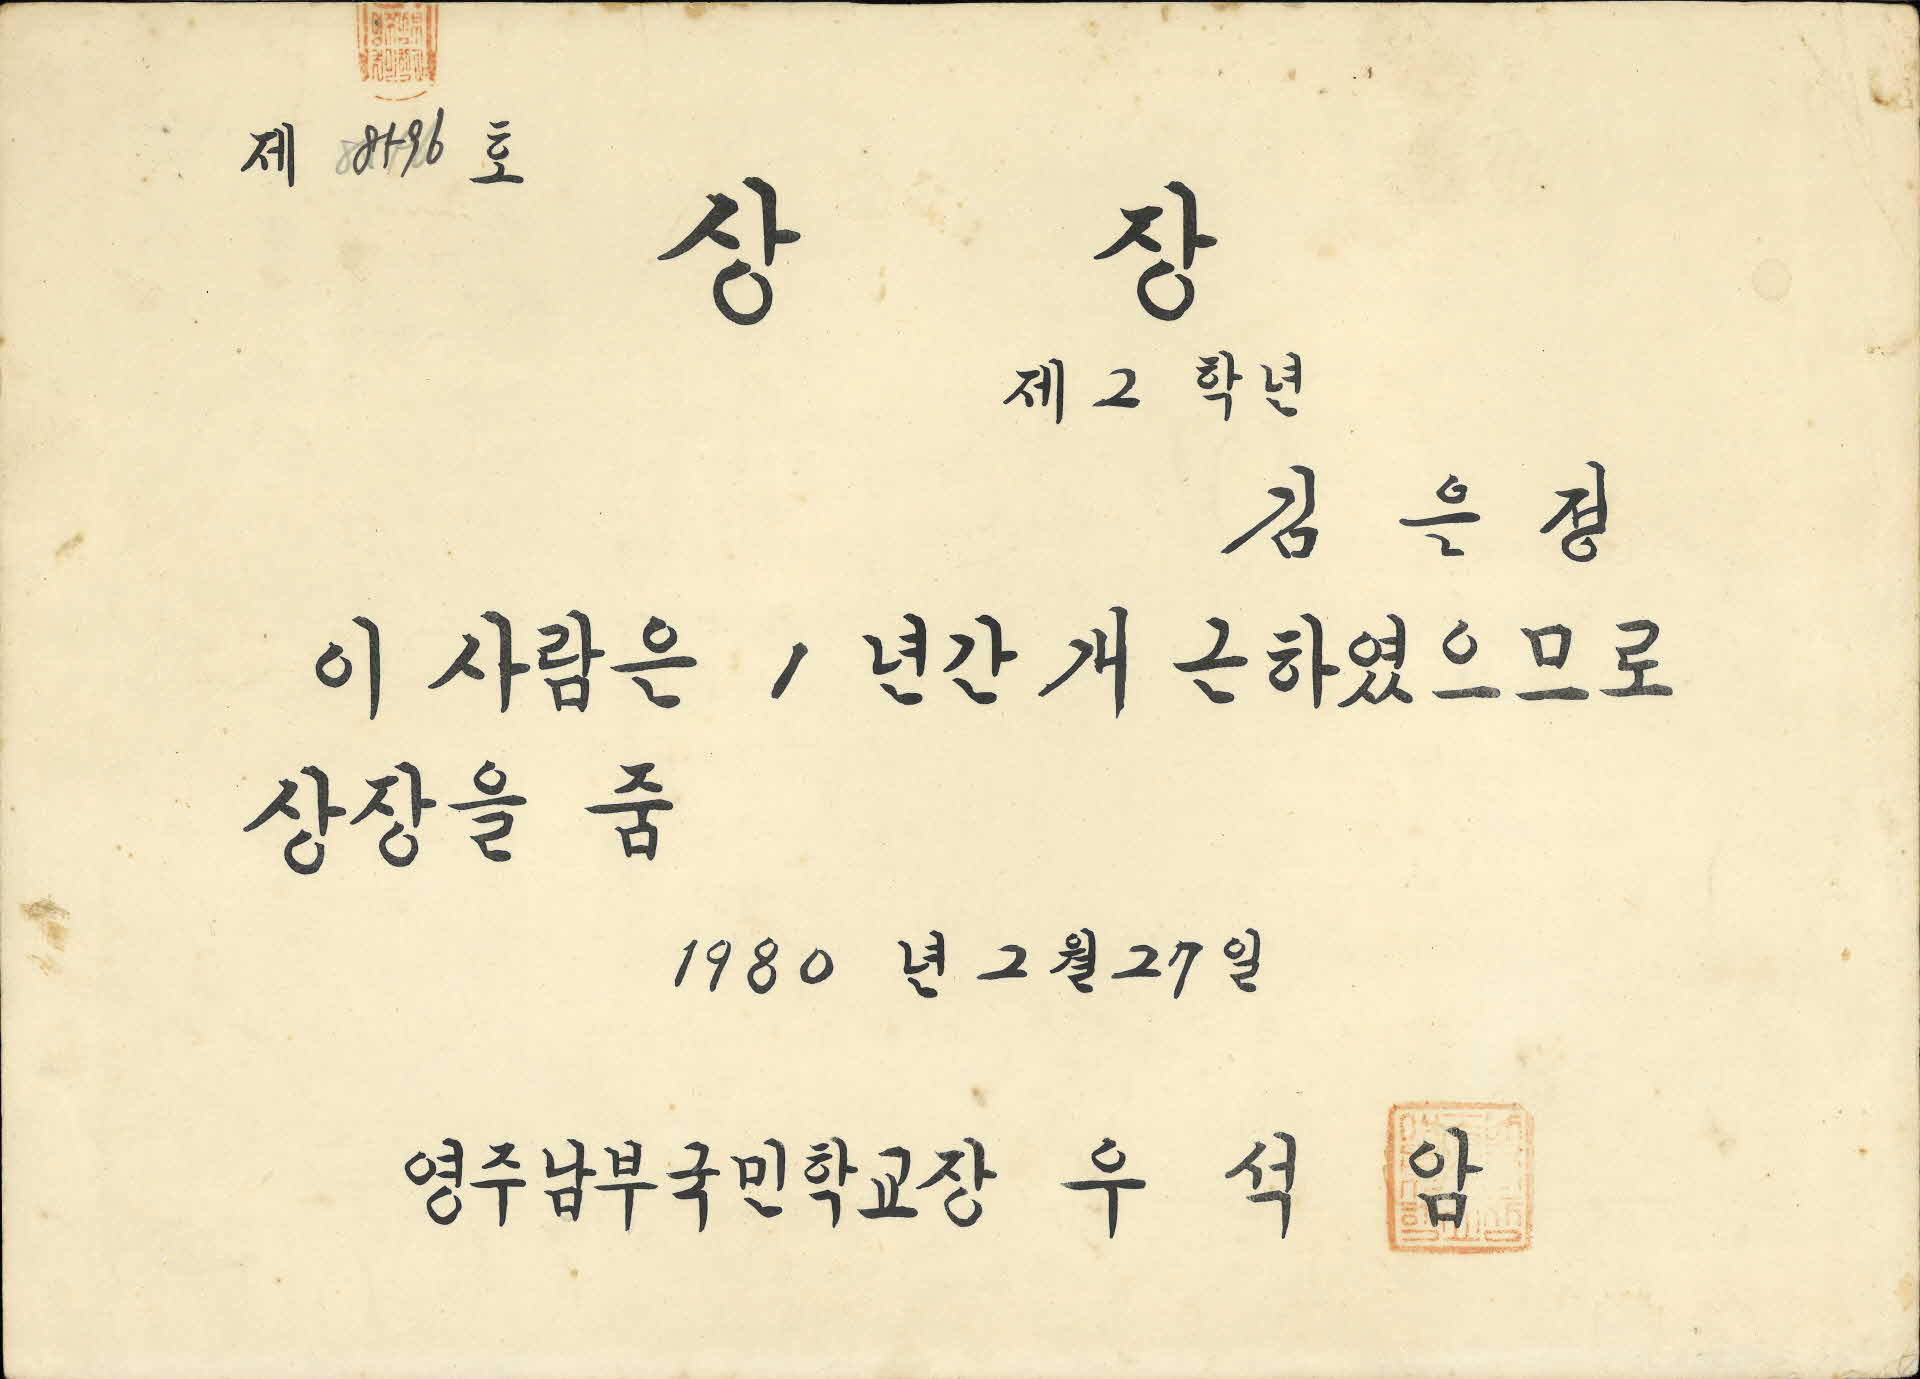 제 8196 호
상 장
제 2 학년
김 은 경
이 사람은 1 년간 개근하였으므로
상장을 줌
1980 년 2 월 27 일
영주남부국민학교장 우 석 암